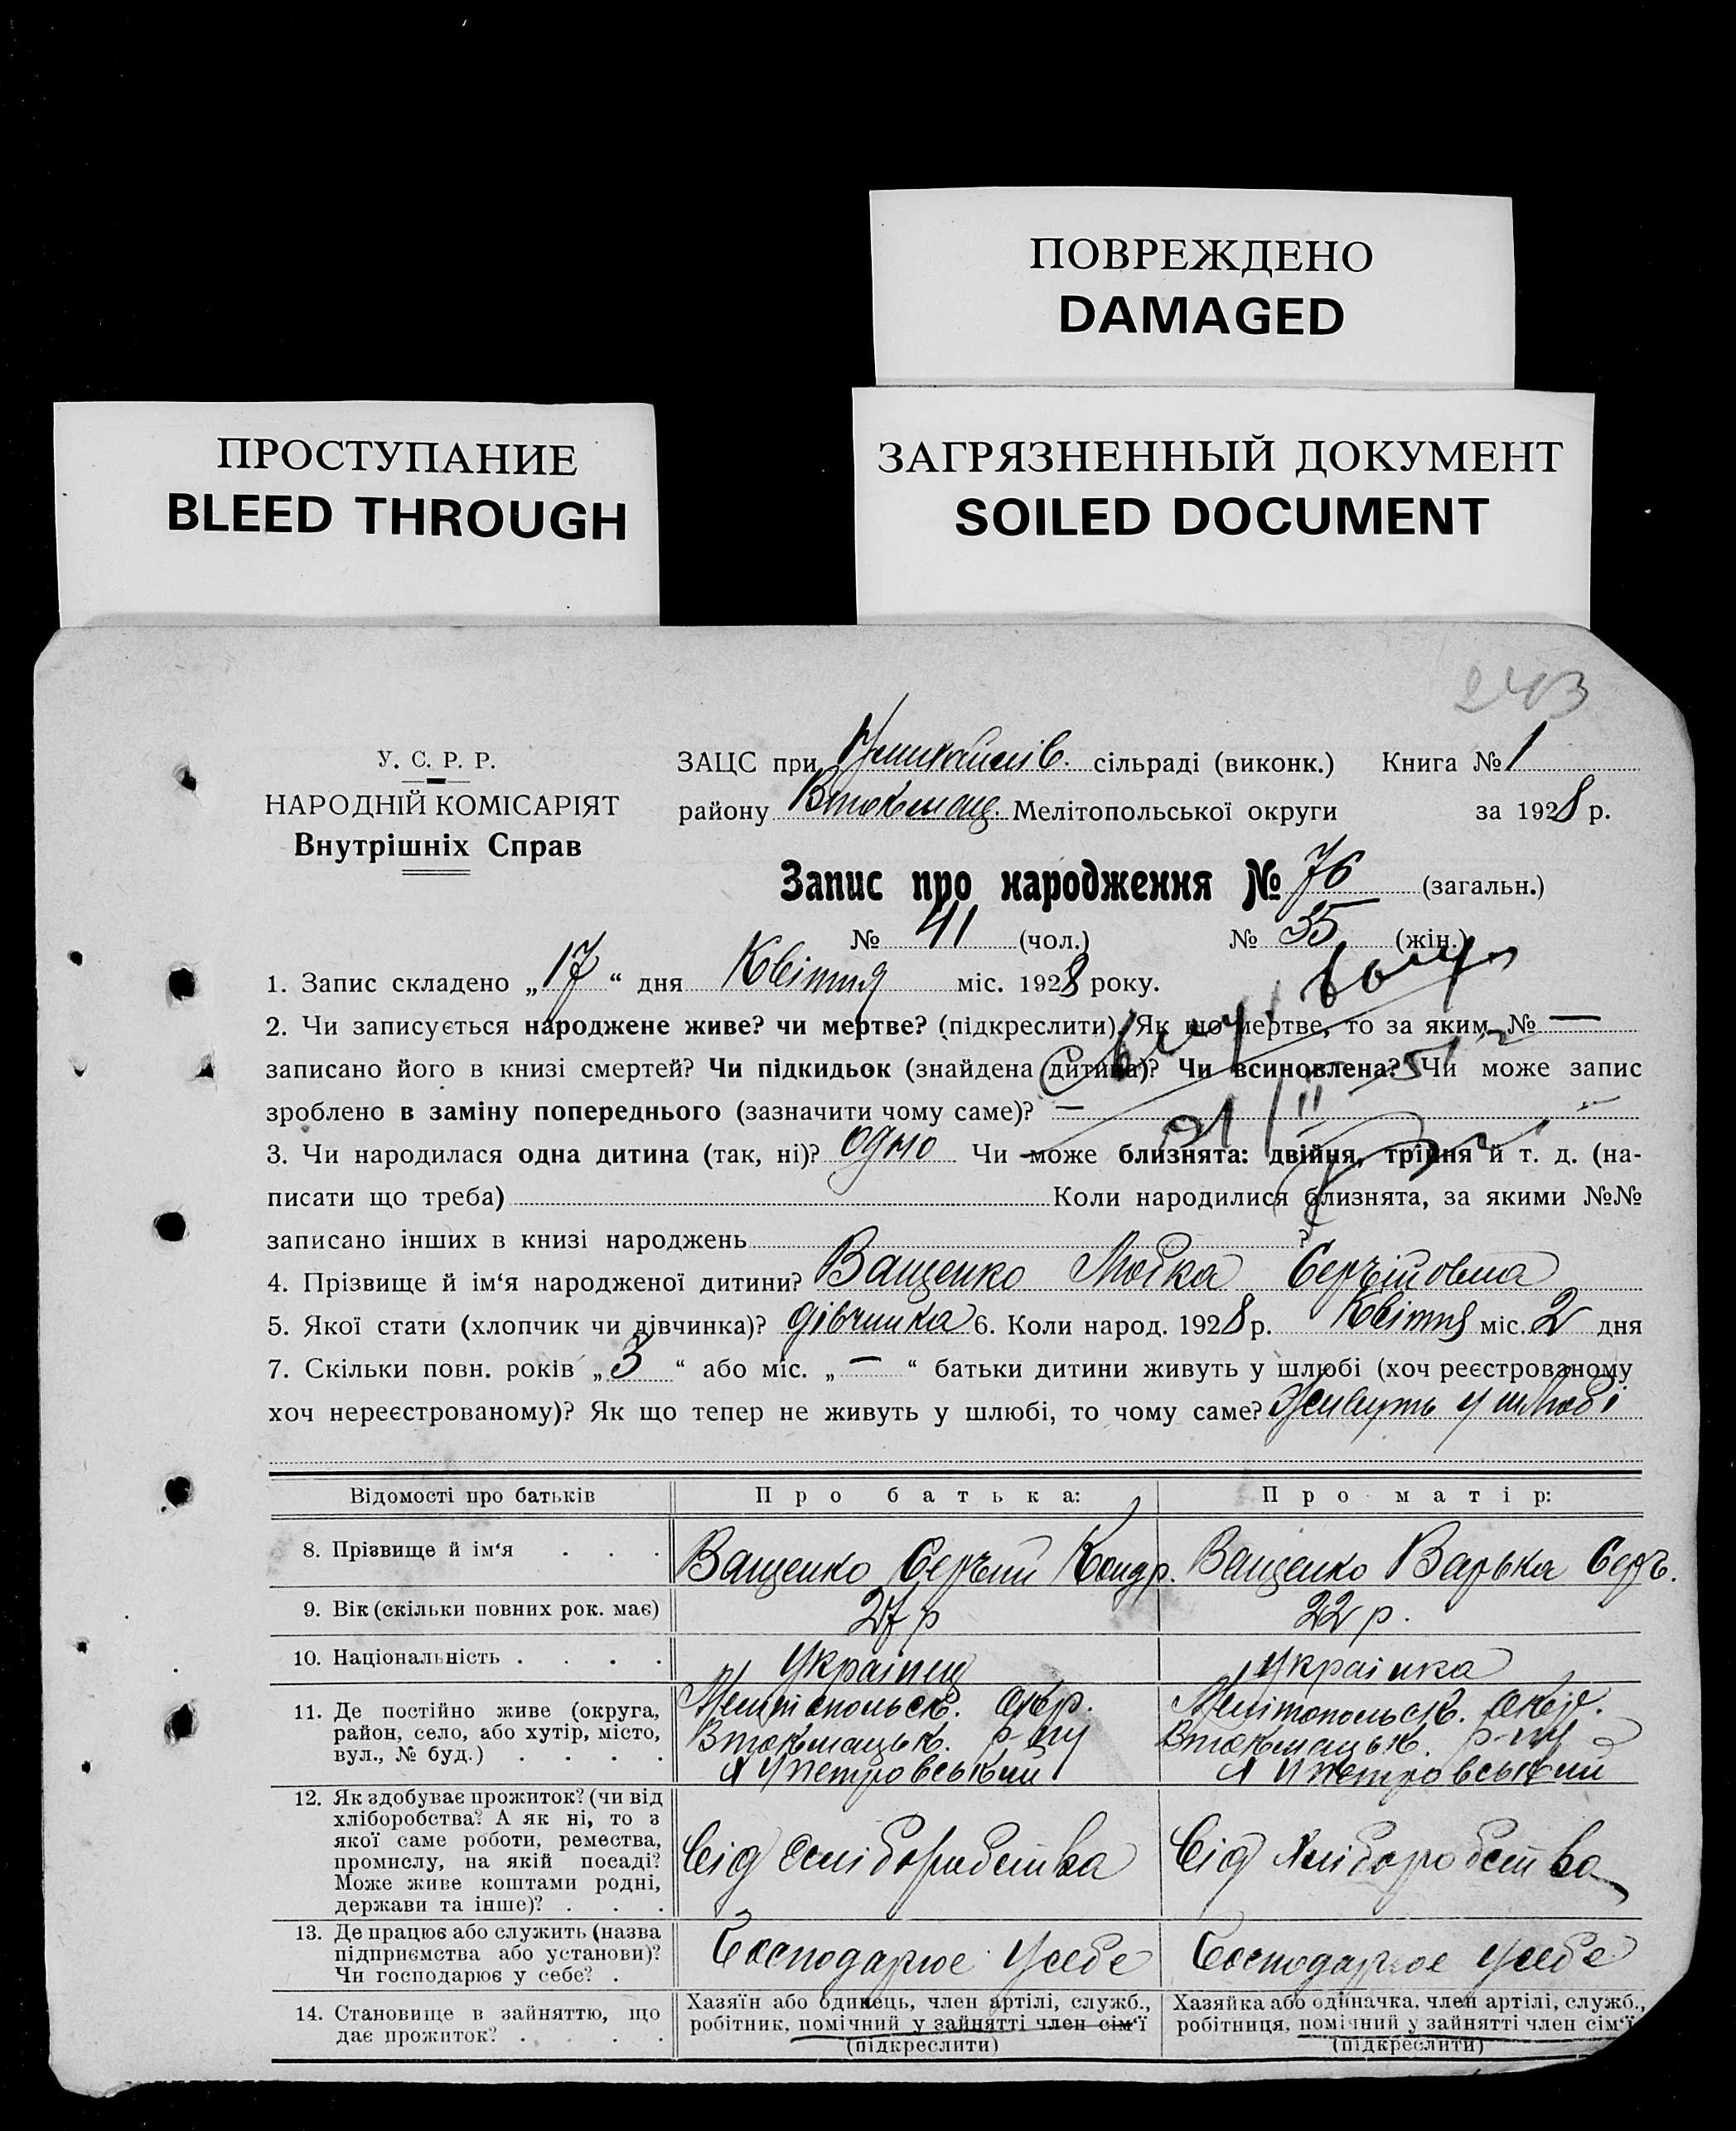 ПОВРЕЖДЕНО
DAMAGED
ПРОСТУПАНИЕ
BLEED THROUGH
ЗАГРЯЗНЕННЫЙ ДОКУМЕНТ
SOILED DOCUMENT
243
У. С. Р. Р.
НАРОДНІЙ КОМІСАРІЯТ
Внутрішніх Справ
ЗАЦС при сільраді (виконк.) Книга № 1
району Втокмац. Мелітопольської округи за 1928 р.
Запис про народження № 76 (загальн.)
№ 41 (чол.) № 35 (жін.)
1. Запис складено „17“ дня Квітня міс. 1928 року.
2. Чи записується народжене живе? чи мертве? (підкреслити). Як що мертве, то за яким № —
записано його в книзі смертей? Чи підкидьок (знайдена дитина)? Чи всиновлена? Чи може запис
зроблено в заміну попереднього (зазначити чому саме)? —
3. Чи народилася одна дитина (так, ні)? одно Чи може близнята: двійня, трійня й т. д. (на-
писати що треба) Коли народилися близнята, за якими №№
записано інших в книзі народжень ?
4. Прізвище й ім‘я народженої дитини? Ващенко Любка Сергіївна
5. Якої стати (хлопчик чи дівчинка)? дівчинка 6. Коли народ. 1928 р. Квітня міс. 2 дня
7. Скільки повн. років „3“ або міс. „—“ батьки дитини живуть у шлюбі (хоч реєстрованому
хоч нереєстрованому)? Як що тепер не живуть у шлюбі, то чому саме? Живуть у шлюбі
Відомості про батьків Про батька: Про матір:
8. Прізвище й ім‘я . . . Ващенко Сергій Кондр. Ващенко Варька Серг.
9. Вік (скільки повних рок. має) 27 р 22 р.
10. Національність . . . . Українец Українка
11. Де постійно живе (округа,
район, село, або хутір, місто,
вул., № буд.) . . . .
Мелітопольськ. окр.
Втокмацьк. р-ну
Петровський
Мелітопольськ. окр.
Втокмацьк. р-ну
Петровський
12. Як здобуває прожиток? (чи від
хліборобства? А як ні, то з
якої саме роботи, ремества,
промислу, на якій посаді?
Може живе коштами родні,
держави та інше)? . . .
Від хліборобства
Від хліборобства
13. Де працює або служить (назва
підприємства або установи)?
Чи господарює у себе? .
Господарює у себе
Господарює у себе
14. Становище в зайняттю, що
дає прожиток? . . . .
Хазяїн або одинець, член артілі, служб.,
робітник, помічний у зайнятті член сім‘ї
(підкреслити)
Хазяйка або одиначка, член артілі, служб.,
робітниця, помічний у зайнятті член сім‘ї
(підкреслити)